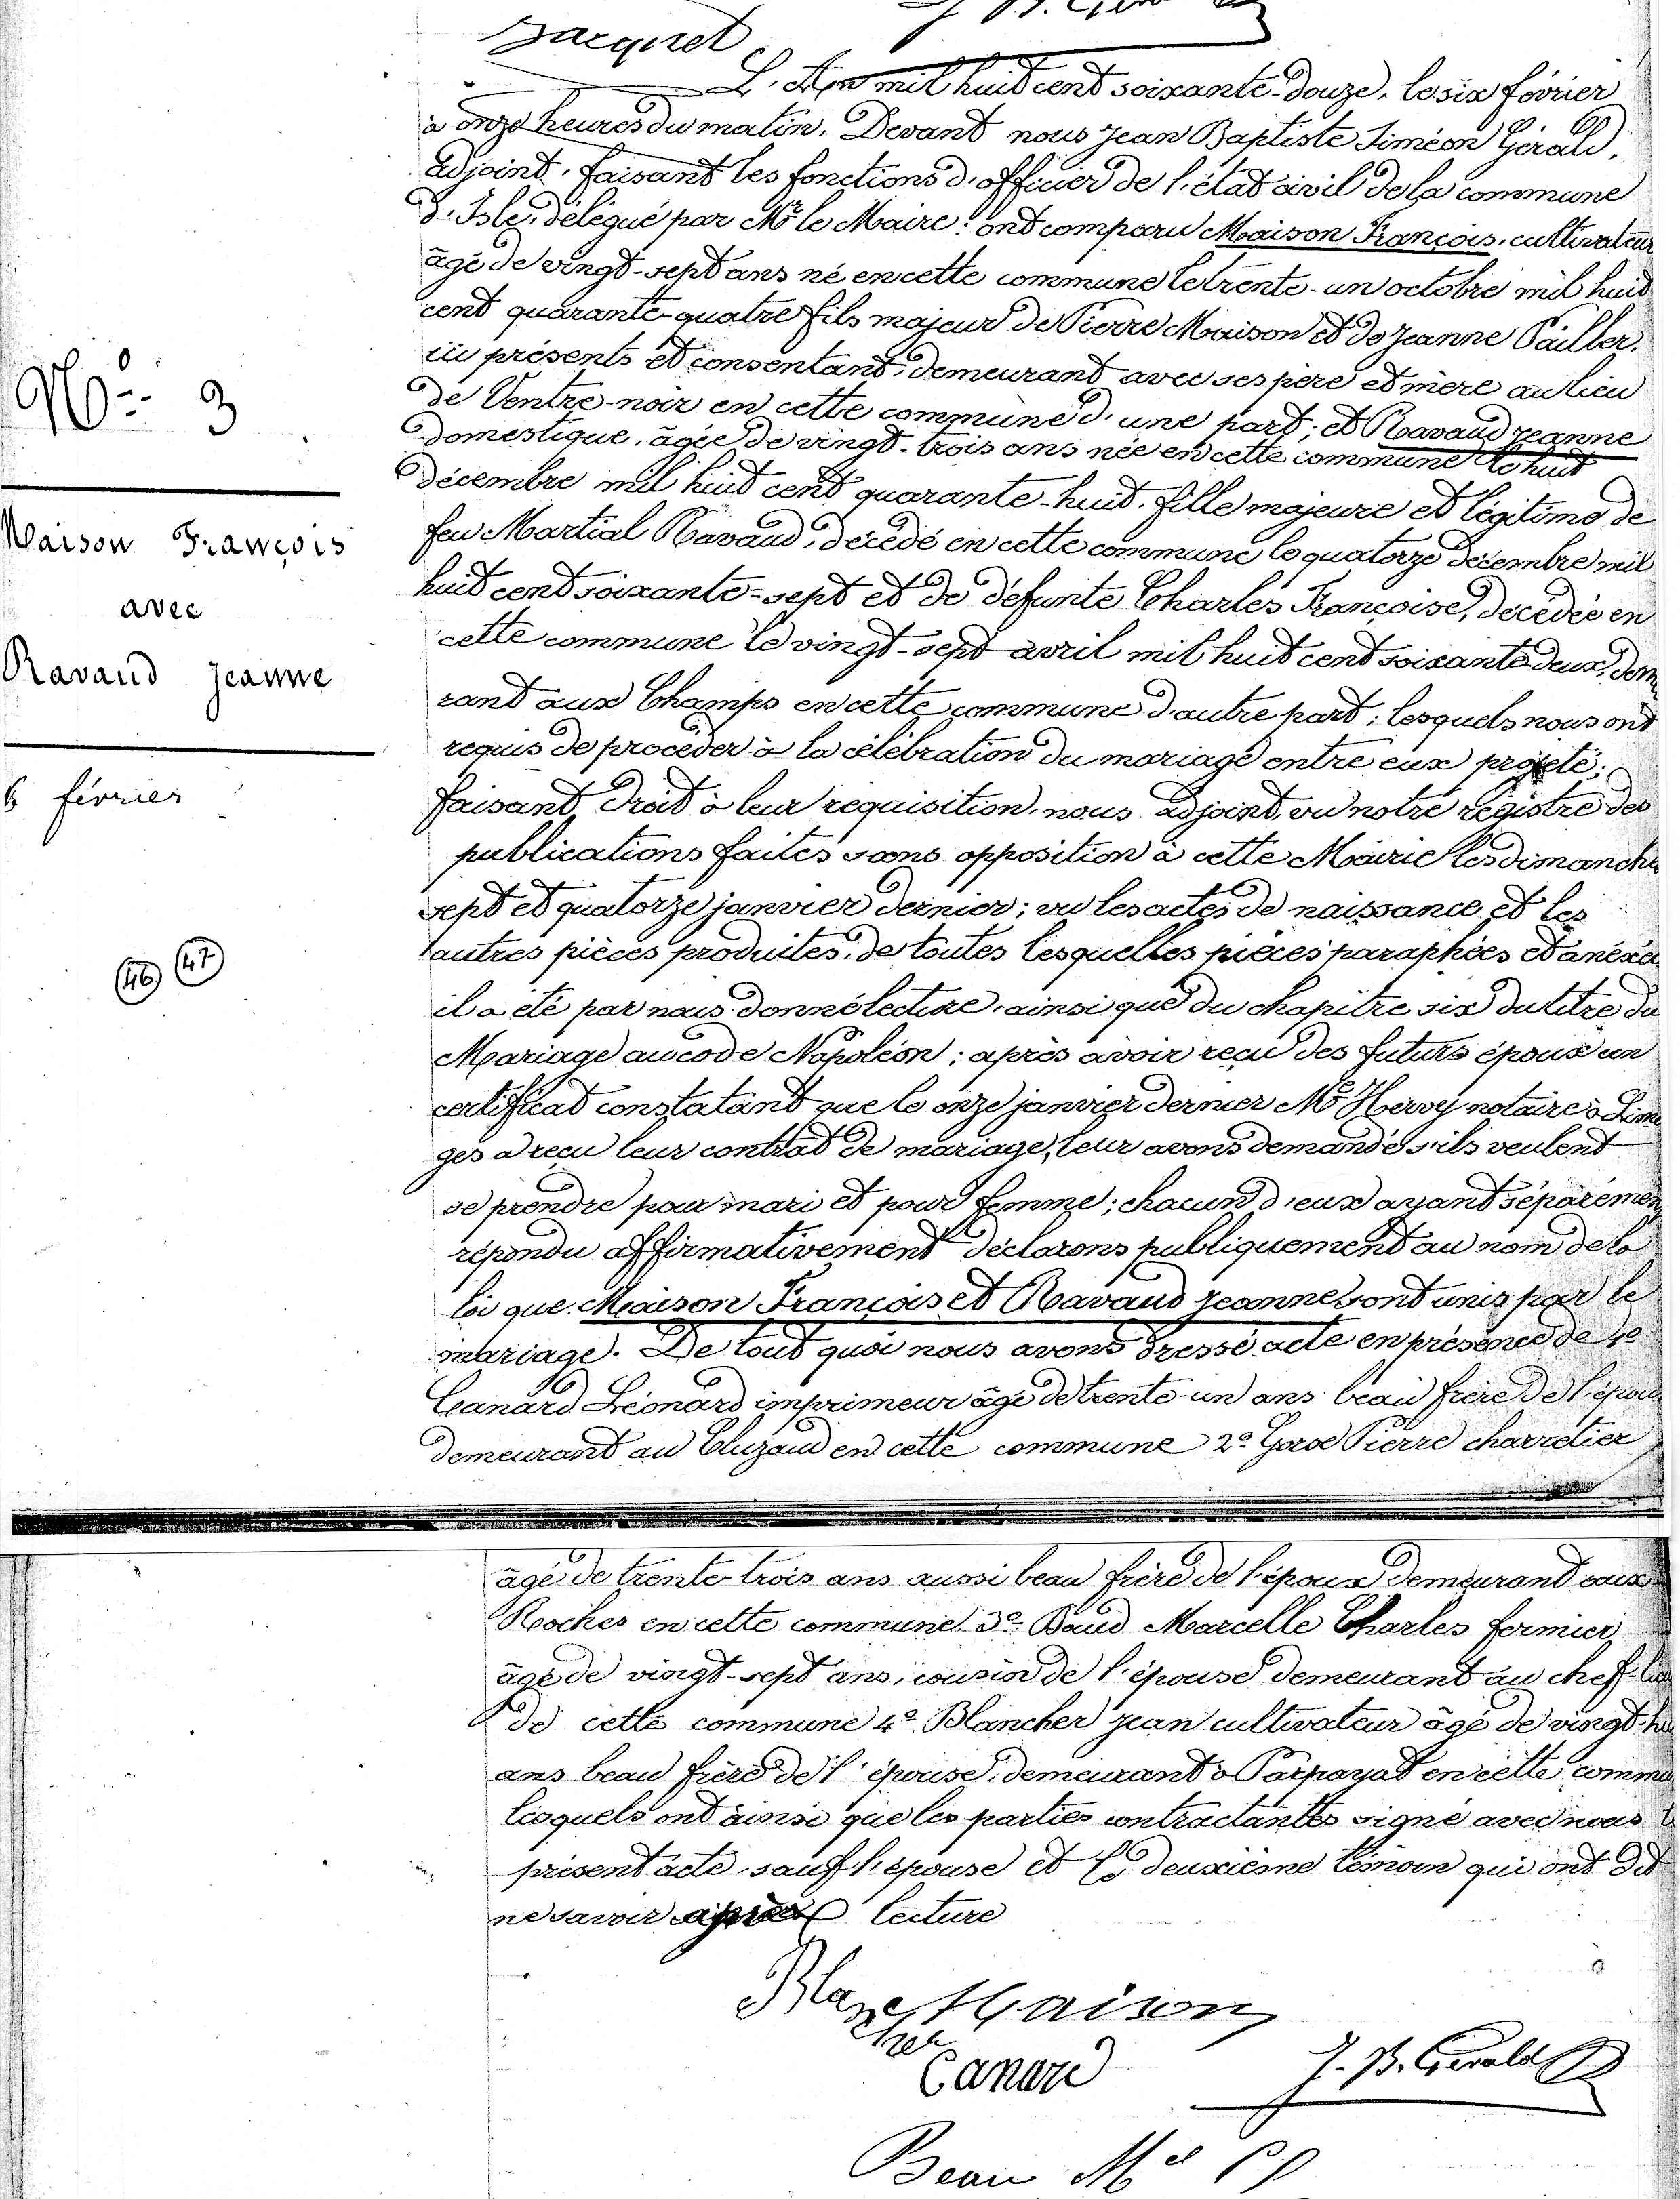 Jacquet
L'An mil huit cent soixante-douze, le six février
à onze heures du matin. Devant nous Jean Baptiste Siméon Gérald,
adjoint, faisant les fonctions d'officier de l'état civil de la commune
d'Isle, délégué par Mr le Maire: ont comparu Maison François, cultivateur
âgé de vingt-sept ans né en cette commune le trente-un octobre mil huit
cent quarante-quatre fils majeur de Pierre Maison et de Jeanne Pailler,
ici présents et consentant, demeurant avec ses père et mère au lieu
de Ventre-noir en cette commune d'une part; et Ravaud Jeanne
domestique, âgée de vingt-trois ans née en cette commune le huit
décembre mil huit cent quarante-huit, fille majeure et légitime de
feu Martial Ravaud, décédé en cette commune le quatorze décembre mil
huit cent soixante-sept et de défunte Charles Françoise, décédée en
cette commune le vingt-sept avril mil huit cent soixante-deux, demeu
rant aux Champs en cette commune d'autre part; lesquels nous ont
requis de procéder à la célébration du mariage entre eux projeté;
faisant droit à leur requisition, nous adjoint, vu notre registre des
publications faites sans opposition à cette Mairie les dimanches
sept et quatorze janvier dernier; vu les actes de naissance et les
autres pièces produites, de toutes lesquelles pièces paraphées et anéxées
il a été par nous donné lecture, ainsi que du chapitre six du titre du
Mariage au code Napoléon; après avoir reçu des futurs époux un
certificat constatant que le onze janvier dernier Me Hervy notaire à Limo
ges a reçu leur contrat de mariage, leur avons demandé s'ils veulent
se prendre pour mari et pour femme; chacun d'eux ayant séparément
répondu affirmativement déclarons publiquement au nom de la
loi que Maison François et Ravaud Jeanne sont unis par le
mariage. De tout quoi nous avons dressé acte en présence de 1º
Canard Léonard imprimeur âgé de trente-un ans beau frère de l'époux
demeurant au Cluzaud en cette commune 2º Gorse Pierre charretier
Nº 3
Maison François
avec
Ravaud Jeanne
6 février
46 47
âgé de trente-trois ans aussi beau frère de l'époux demeurant aux
Roches en cette commune 3º Baud Marcelle Charles fermier
âgé de vingt-sept ans, cousin de l'épouse demeurant au chef-lieu
de cette commune 4º Blancher Jean cultivateur âgé de vingt-hu
ans beau frère de l'épouse, demeurant à Parpayat en cette commu
lesquels ont ainsi que les parties contractantes signé avec nous le
présent acte, sauf l'épouse et le deuxième témoin qui ont dit
ne savoir après lecture
Blancher Maison
Canard J. B. Gérald
Beau Mel